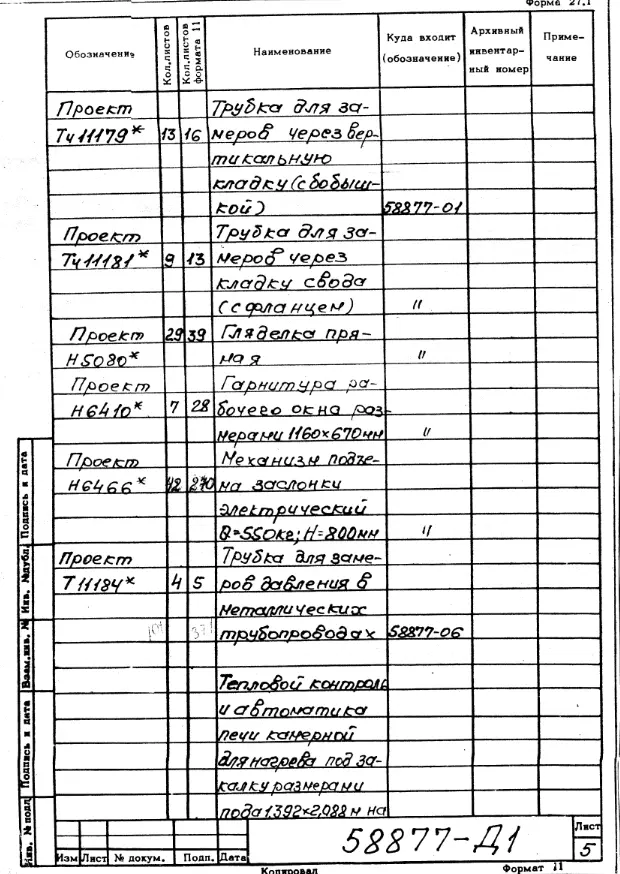 Форма 27.1
Обозначение
Кол.листов
Кол.листов формата 11
Наименование
Куда входит (обозначение)
Архивный инвентарный номер
Примечание
Проект Трубка для за-
Тч 11179* 13 16 меров через вер-
тикальную
кладку (с бобыш-
кой) 58877-01
Проект Трубка для за-
Тч 11181* 9 13 меров через
кладку свода
(с фланцем) "
Проект 29 39 Гляделка пря-
Н5080* мая "
Проект Гарнитура ра-
Н6410* 7 28 бочего окна раз-
мерами 1160×670мм "
Проект Механизм подъе-
Н6466* 42 270 ма заслонки
электрический
Q=550кг; H=800мм "
Проект Трубка для заме-
Т 11184* 4 5 ров давления в
металлических
трубопроводах 58877-06
Тепловой контроль
и автоматика
печи камерной
для нагрева под за-
калку размерами
пода 1.392×2,088 м на
Инв. № подл. Подпись и дата Взам.инв. № Инв. №дубл. Подпись и дата
58877-Д1
Лист
5
Изм Лист № докум. Подп. Дата
Копировал Формат 11